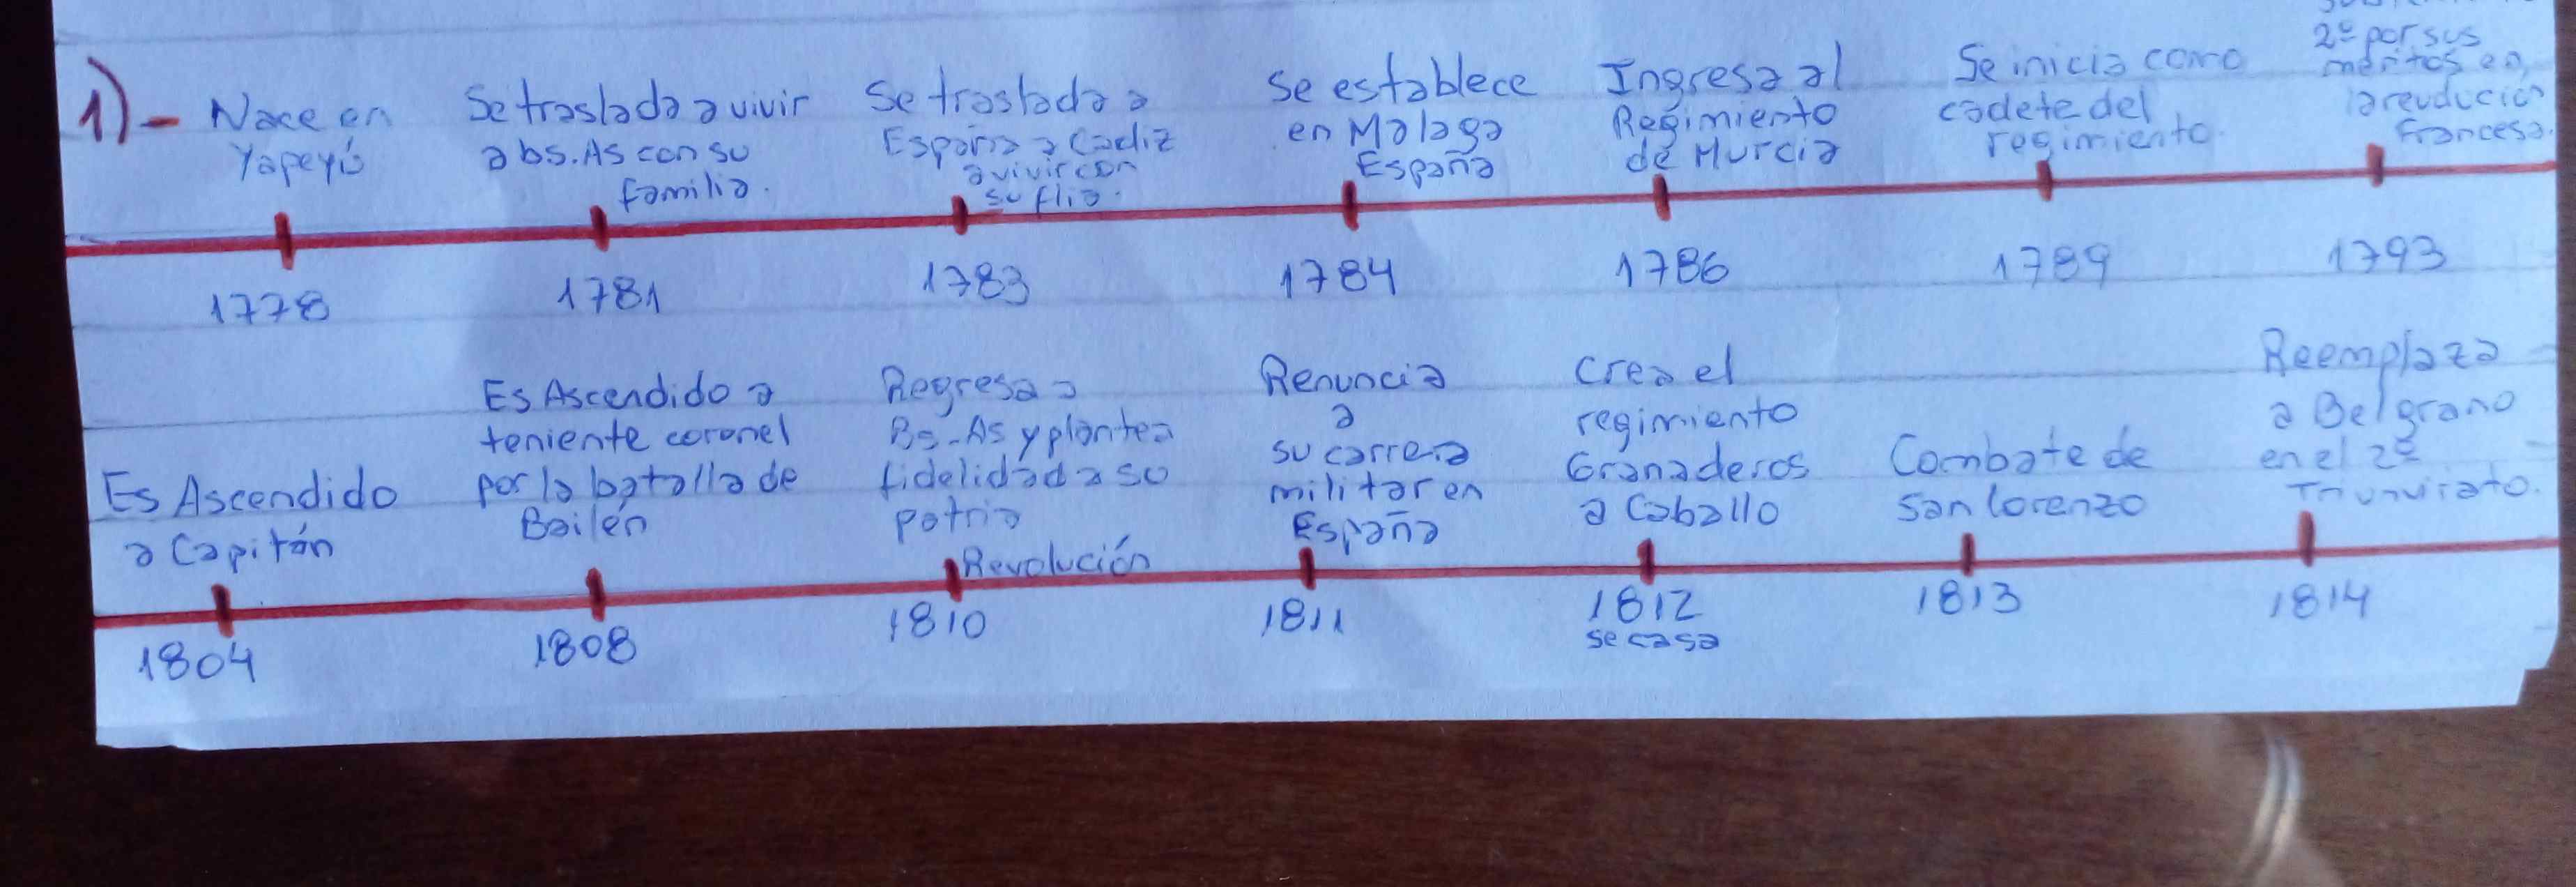 1)-
Nace en
Yapeyú
1778
Se traslada a vivir
a bs. As con su
familia.
1781
Se traslada a
España a Cadiz
a vivir con
su flia.
1783
Se establece
en Malaga
España
1784
Ingresa al
Regimiento
de Murcia
1786
Se inicia como
cadete del
regimiento.
1789
2º por sus
meritos en
la
Francesa.
1793
Es Ascendido
a Capitán
1804
Es Ascendido a
teniente coronel
por la batalla de
Bailén
1808
Regresa a
Bs. As y plantea
fidelidad a su
patria
Revolución
1810
Renuncia
a
su carrera
militar en
España
1811
Crea el
regimiento
Granaderos
a Caballo
1812
se casa
Combate de
San Lorenzo
1813
Reemplaza
a Belgrano
en el 2º
Triunvirato.
1814